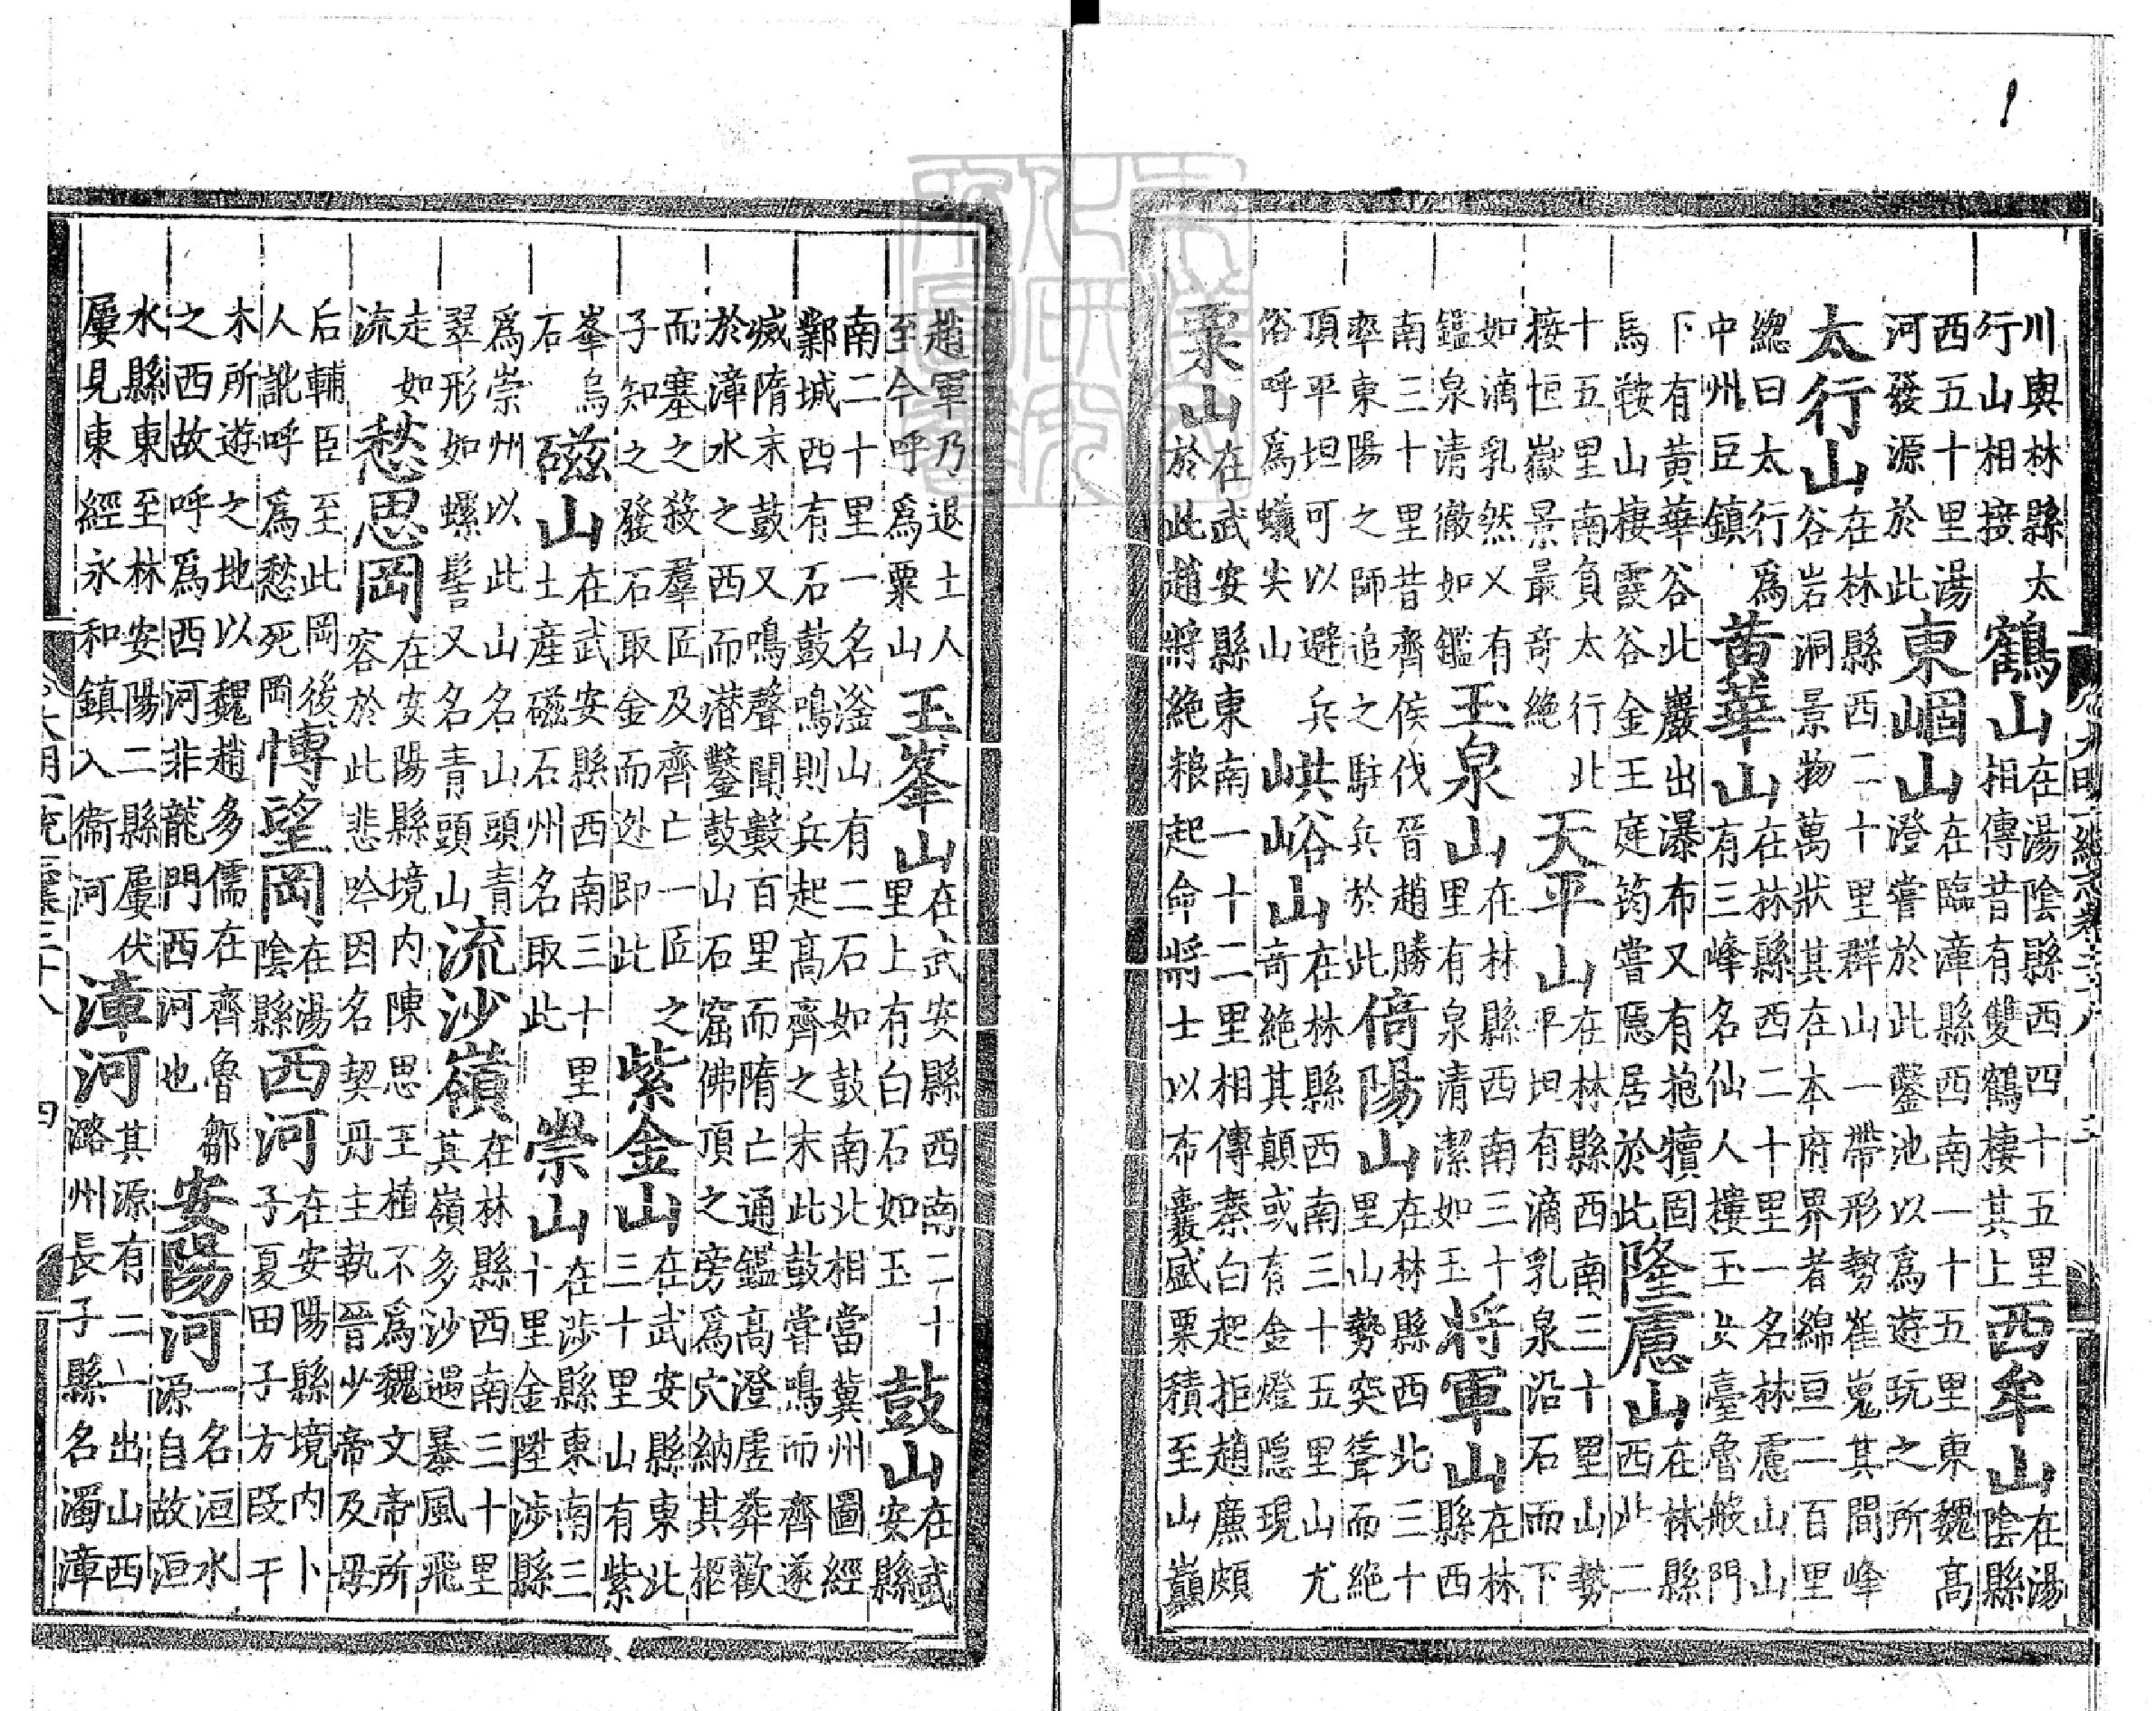 川輿林縣太行山相接鶴山在湯陰縣西四十五里相傳昔有雙鶴棲其上西牟山在湯陰縣
西五十里湯河發源於此東崓山在臨漳縣西南一十五里東魏高澄嘗於此鑿池以爲遊玩之所
太行山在林縣西二十里群山一帶形勢崔嵬其間峰谷岩洞景物萬狀其在本府界者綿亘二百里
總曰太行爲中州巨鎮黃華山在林縣西二十里一名林慮山山有三峰名仙人樓玉女臺魯般門
下有黃華谷此巖出瀑布又有抱犢固馬鞍山棲霞谷金王庭筠嘗隱居於此隆慮山在林縣西北二
十五里南負太行北接恒嶽景最奇絕天平山在林縣西南三十里山勢平坦有滴乳泉沿石而下
如滴乳然又有鑑泉清徹如鑑玉泉山在林縣西南三十里有泉清潔如玉將軍山在林縣西
南三十里昔齊侯伐晉趙勝率東陽之師追之駐兵於此倚陽山在林縣西北三十里山勢突聳而絕
頂平坦可以避兵俗呼爲蟻尖山峪山在林縣西南三十五里山尤奇絕其顛或有金燈隱現
粟山在武安縣東南一十二里相傳秦白起拒趙廉頗於此趙將絕粮起命將士以布囊盛粟積至山巔
趙軍乃退土人至今呼爲粟山玉峯山在武安縣西南二十里上有白石如玉鼓山在武安縣
南二十里一名滏山有二石如鼓南北相當冀州圖經鄴城西有石鼓鳴則兵起高齊之末此鼓嘗鳴而齊遂
滅隋末鼓又鳴聲聞數百里而隋亡通鑑高澄虗葬歡於漳水之西而潜鑿鼓山石窟佛頂之旁爲穴納其柩
而塞之殺羣匠及齊亡一匠之子知之發石取金而迯即此紫金山在武安縣東北三十里山有紫
峯烏石磁山在武安縣西南三十里土産磁石州名取此崇山在涉縣東南三十里金陞涉縣
爲崇州以此山名山頭青翠形如螺髻又名青頭山流沙嶺在林縣西南三十里其嶺多沙遇暴風飛
走如流愁思岡在安陽縣境内陳思王植不爲魏文帝所容於此悲吟因名契丹主執晉少帝及母
后輔臣至此岡後人訛呼爲愁死岡慱望岡在湯陰縣西河在安陽縣境内卜子夏田子方段干
木所遊之地以魏趙多儒在齊魯鄒之西故呼爲西河非龍門西河也安陽河一名洹水源自故洹
水縣東至林安陽二縣屢伏屢見東經永和鎮入衞河漳河其源有二一出山西潞州長子縣名濁漳
大明一統志卷二十八 四